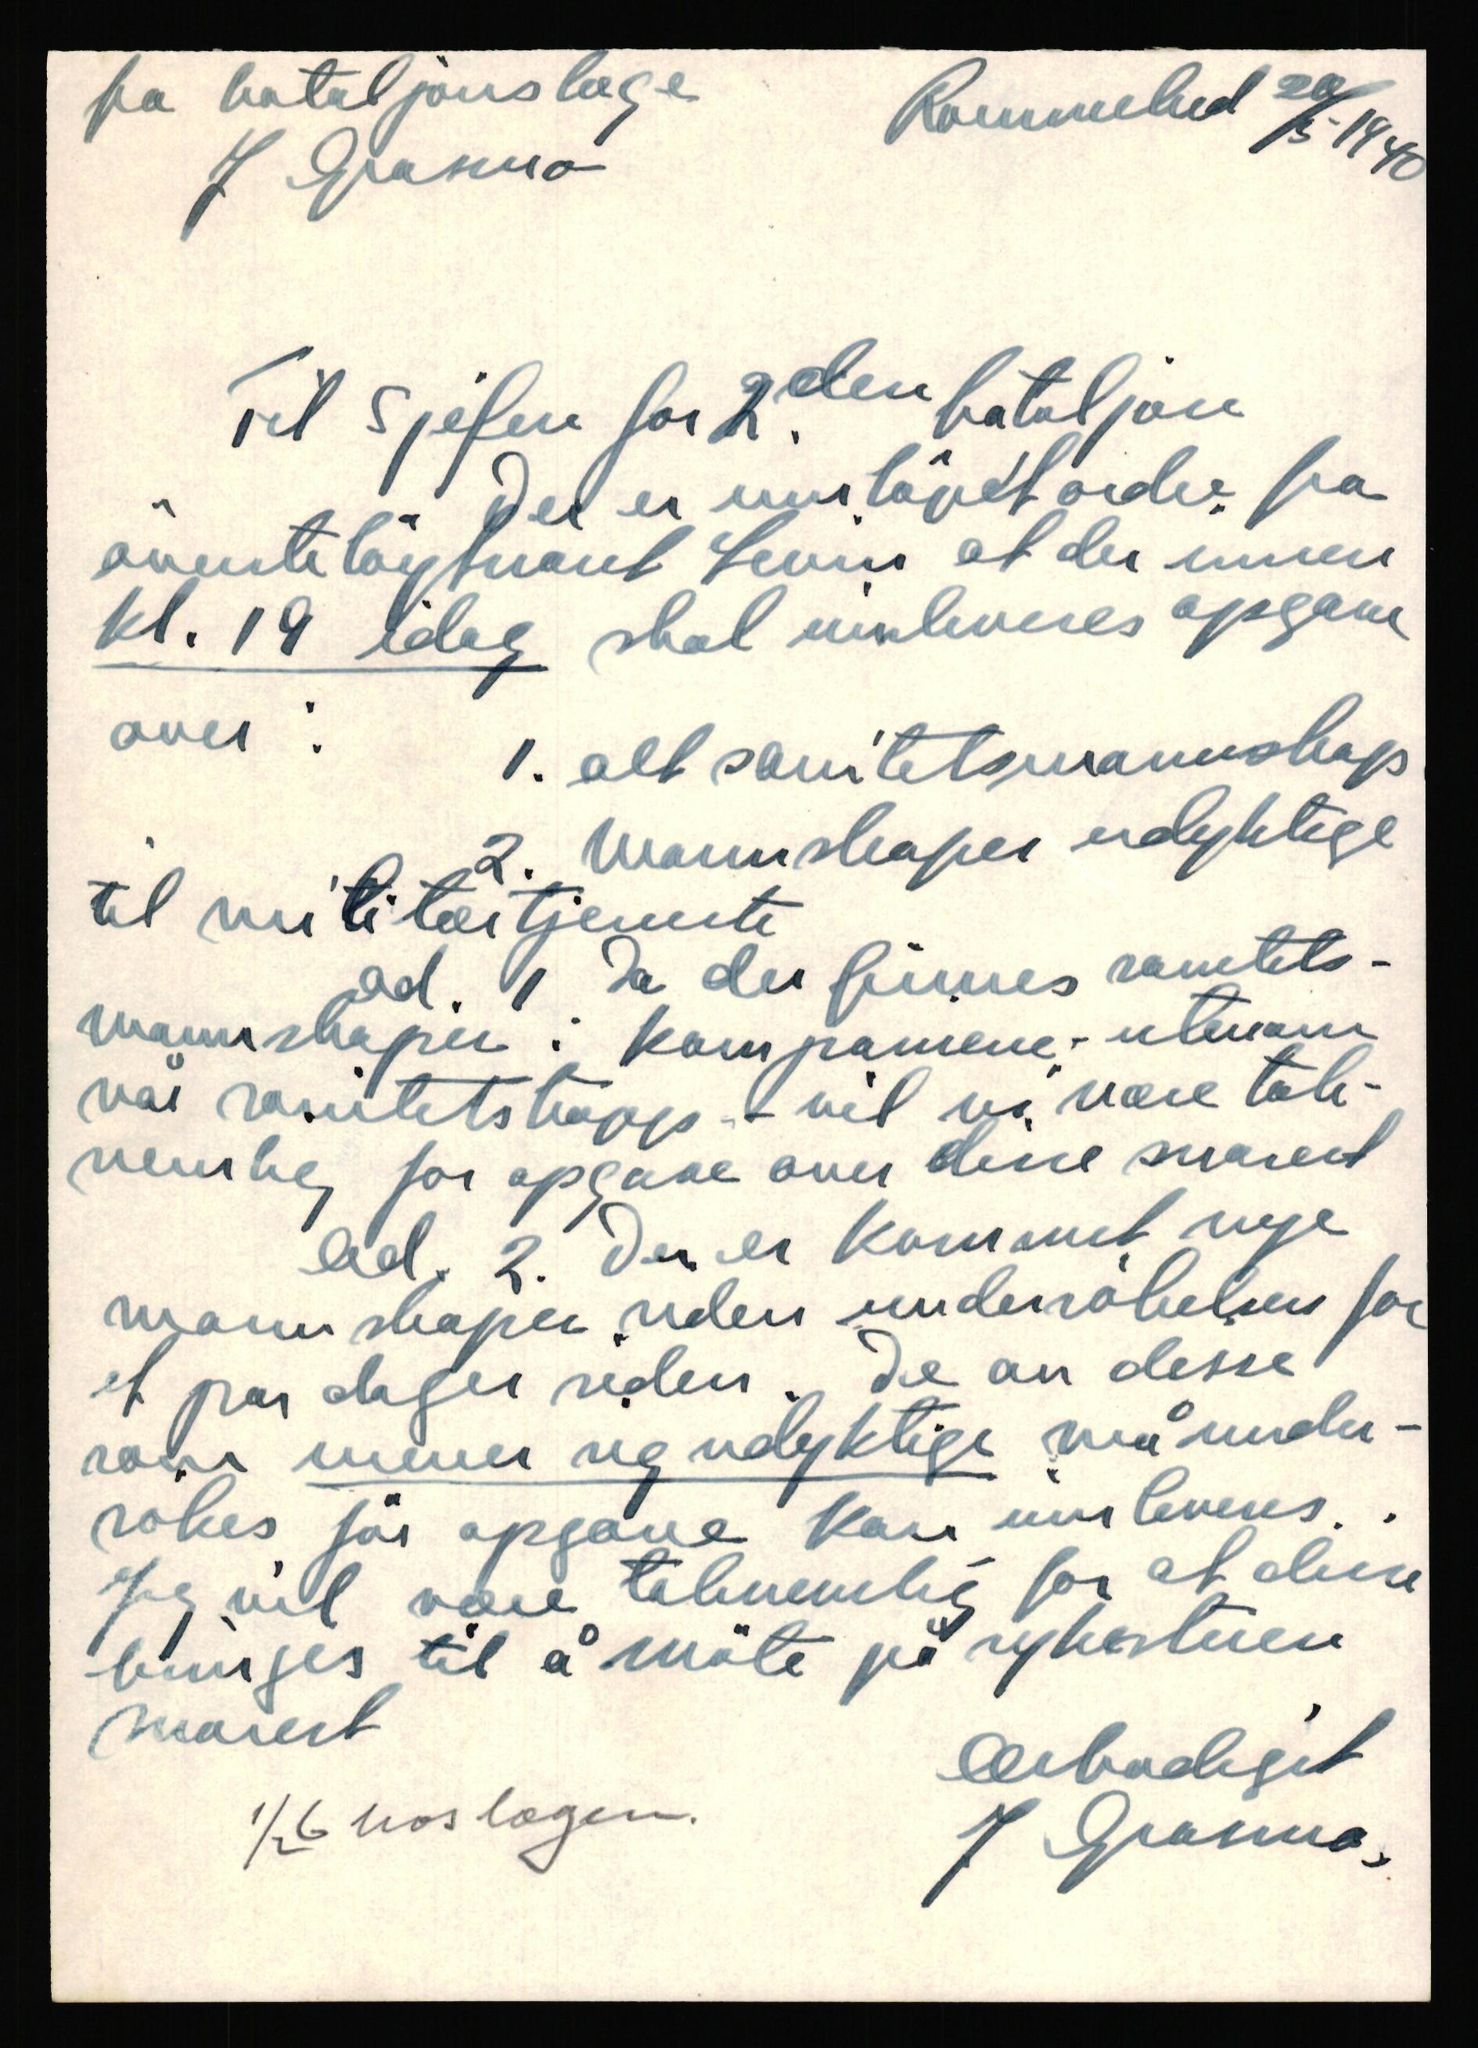 fra bataljonslæge
Rommehed 20/5-1940
J Grasmo
Til Sjefen for 2.den bataljon
Der er innløpet ordre fra
överstelöytnant at der innen
kl. 19 idag skal innleveres opgave
over :
1. alt sanitetsmannskap
2. Mannskaper udyktige
til militærtjeneste
ad. 1 Da der finnes sanitets-
mannskaper i kompaniene - utenom
vår sanitetstropp - vil vi være tak-
nemlig for opgave over disse snarest
ad. 2. Der er kommet nye
mannskaper uden undersökelser for
et par dager siden. De av disse
som mener sig udyktige må under-
sökes för opgave kan innleveres.
Jeg vil være taknemlig for at disse
bringes til å möte på sykestuen
snarest
Ærbødigst
J Grasmo.
1/26 hos lægen.